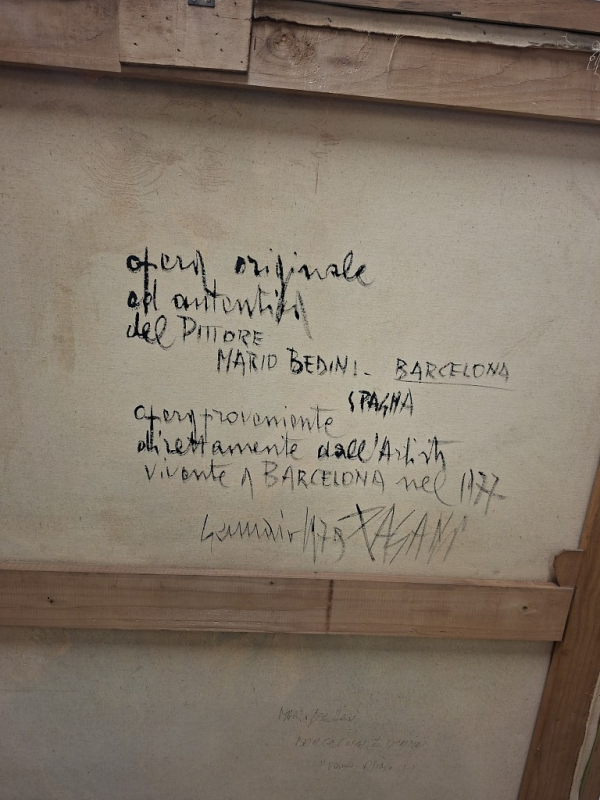 opera originale
ed autentica
del PITTORE
MARIO BEDINI - BARCELONA
SPAGNA
opera proveniente
direttamente dall'Artista
vivente a BARCELONA nel 1977
PAGANI